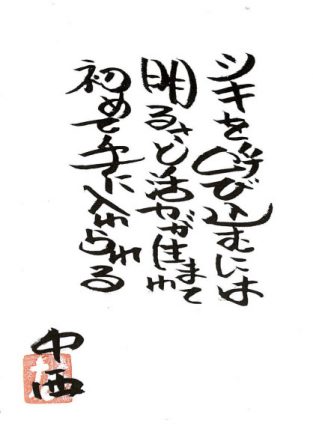 ツキを呼び込むには
明るさと活力が生まれて
初めて手に入れられる
中西